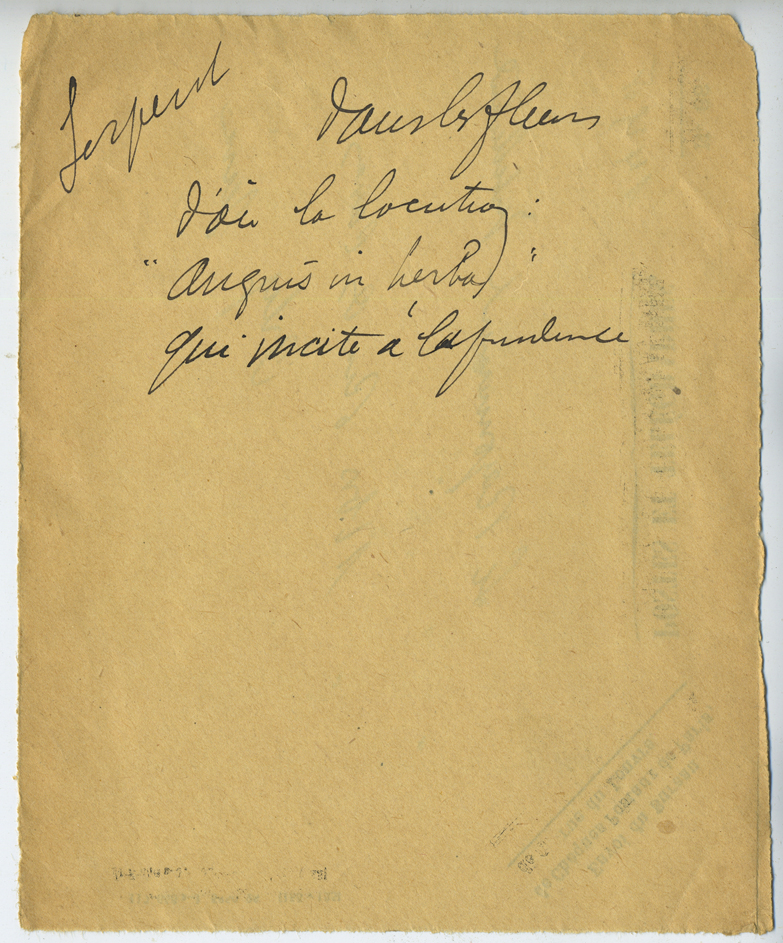 Serpent
dans les fleurs
d'où la locution :
"anguis in herba"
qui incite à la prudence